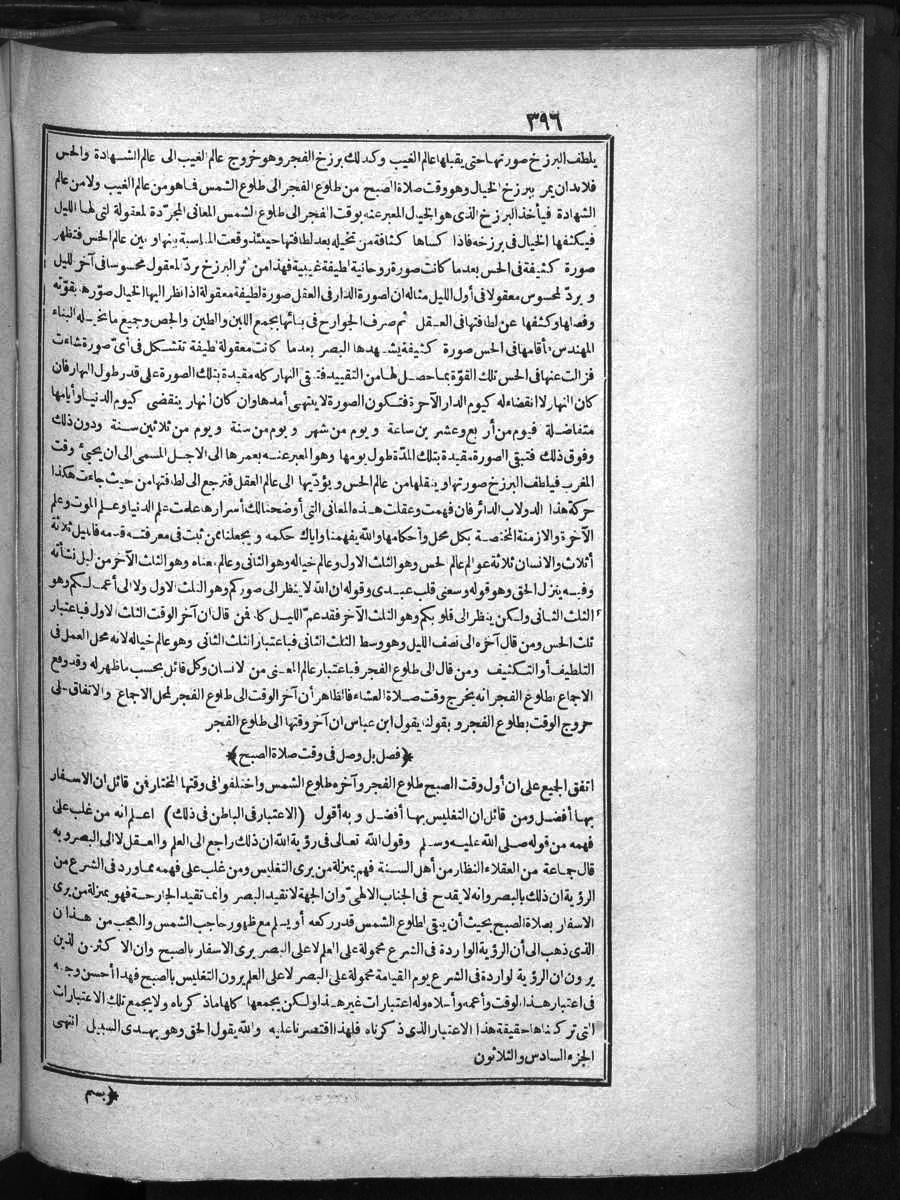 ٣٩٦
يلطف البرزخ صورتها حتى يقبلها عالم الغيب وكذلك برزخ الفجر وهو خروج عالم الغيب الى عالم الشهادة والحس
فلا بد ان يمر ببرزخ الخيال وهو وقت صلاة الصبح من طلوع الفجر الى طلوع الشمس فاهو من عالم الغيب ولا من عالم
الشهادة فيأخذ البرزخ الذى هو الخيال المعبر عنه بوقت الفجر الى طلوع الشمس المعانى المجرّدة المعقولة التى لها الليل
فيكثفها الخيال فى برزخه فاذا كساها كثافة من تخيله بعد لطافتها حينئذ وقعت المناسبة بينها وبين عالم الحس فتظهر
صورة كثيفة فى الحس بعدما كانت صورة روحانية لطيفة غيبية فهذا من أثر البرزخ يردّ المعقول محسوسا فى آخر الليل
ويردّ المحسوس معقولا فى أول الليل مثاله ان لصورة الدار فى العقل صورة لطيفة معقولة اذا نظر اليها الخيال صوّرها بقوّته
وفصلها وكثفها عن لطافتها فى العقل ثم صرف الجوارح فى بنائها بجمع اللبن والطين والجص وجميع ما تخيله البناء
المهندس فأقامها فى الحس صورة كثيفة يشهدها البصر بعدما كانت معقولة لطيفة تتشكل فى أىّ صورة شاءت
فزالت عنها فى الحس تلك القوّة بما حصل لها من التقييد فتبقى النهار كله مقيدة بتلك الصورة على قدر طول النهار فان
كان النهار لا انقضاء له كيوم الدار الآخرة فتكون الصورة لا ينتهى أمدها وان كان النهار ينقضى كيوم الدنيا وأيامها
متفاضلة فيوم من أربع وعشرين ساعة ويوم من شهر ويوم من سنة ويوم من ثلاثين سنة ودون ذلك
وفوق ذلك فتبقى الصورة مقيدة بتلك المدّة طول يومها وهو المعبر عنه بعمرها الى الاجل المسمى الى ان يجيئ وقت
المغرب فيلطف البرزخ صورتها وينقلها من عالم الحس ويؤدّيها الى عالم العقل فترجع الى لطافتها من حيث جاءت هكذا
حركة هذا الدولاب الدائر فان فهمت وعقلت هذه المعانى التى أوضحنا لك أسرارها علمت علم الدنيا وعلم الموت وعلم
الآخرة والازمنة المختصة بكل محل وأحكامها والله يفهمنا واياك حكمه ويجعلنا ممن ثبت فى معرفته قدمه فالليل ثلاثة
أثلاث والانسان ثلاثة عوالم عالم الحس وهو الثلث الاول وعالم خياله وهو الثانى وعالم معناه وهو الثلث الآخر من ليل نشأته
وفيه ينزل الحق وهو قوله وسعنى قلب عبدى وقوله ان الله لا ينظر الى صوركم وهو الثلث الاول ولا الى أعمالكم وهو
الثلث الثانى ولكن ينظر الى قلوبكم وهو الثلث الآخر فقد عم الليل كله فمن قال ان آخر الوقت الثلث الاول فباعتبار
ثلث الحس ومن قال آخره الى نصف الليل وهو وسط الثلث الثانى فباعتبار الثلث الثانى وهو عالم خياله لانه محل العمل فى
التلطيف أو التكثيف ومن قال الى طلوع الفجر فباعتبار عالم المعنى من الانسان وكل قائل بحسب ما ظهر له وقد وقع
الاجماع بطلوع الفجر انه يخرج وقت صلاة العشاء فالظاهر أن آخر الوقت الى طلوع الفجر لمحل الاجماع والاتفاق على
خروج الوقت بطلوع الفجر وبقولنا يقول ابن عباس ان آخر وقتها الى طلوع الفجر
﴿فصل بل وصل فى وقت صلاة الصبح﴾
اتفق الجميع على ان أول وقت الصبح طلوع الفجر وآخره طلوع الشمس واختلفوا فى وقتها المختار فمن قائل ان الاسفار
بها أفضل ومن قائل ان التغليس بها أفضل وبه أقول (الاعتبار فى الباطن فى ذلك) اعلم انه من غلب على
فهمه من قوله صلى الله عليه وسلم وقول الله تعالى فى رؤية الله ان ذلك راجع الى العلم والعقل لا الى البصر وبه
قال جماعة من العقلاء النظار من أهل السنة فهم بمنزلة من يرى التغليس ومن غلب على فهمه مما ورد فى الشرع من
الرؤية ان ذلك بالبصر وانه لا يقدح فى الجناب الالهىّ وان الجهة لا تقيد البصر وانما تقيد الجارحة فهو بمنزلة من يرى
الاسفار بصلاة الصبح بحيث أن يبقى لطلوع الشمس قدر ركعة أو يسلم مع ظهور حاجب الشمس والعجب من هذا ان
الذى ذهب الى أن الرؤية الواردة فى الشرع محمولة على العلم لا على البصر يرى الاسفار بالصبح وان الاكثرين الذين
يرون ان الرؤية الواردة فى الشرع يوم القيامة محمولة على البصر لا على العلم يرون التغليس بالصبح فهذا أحسن وجه
فى اعتبار هذا الوقت وأعمه وأعلاه وله اعتبارات غير هذا ولكن يجمعها كلها ما ذكرناه ولا يجمع تلك الاعتبارات
التى تركناها حقيقة هذا الاعتبار الذى ذكرناه فلهذا اقتصرنا عليه والله يقول الحق وهو يهدى السبيل انتهى
الجزء السادس والثلاثون
﴿بسم